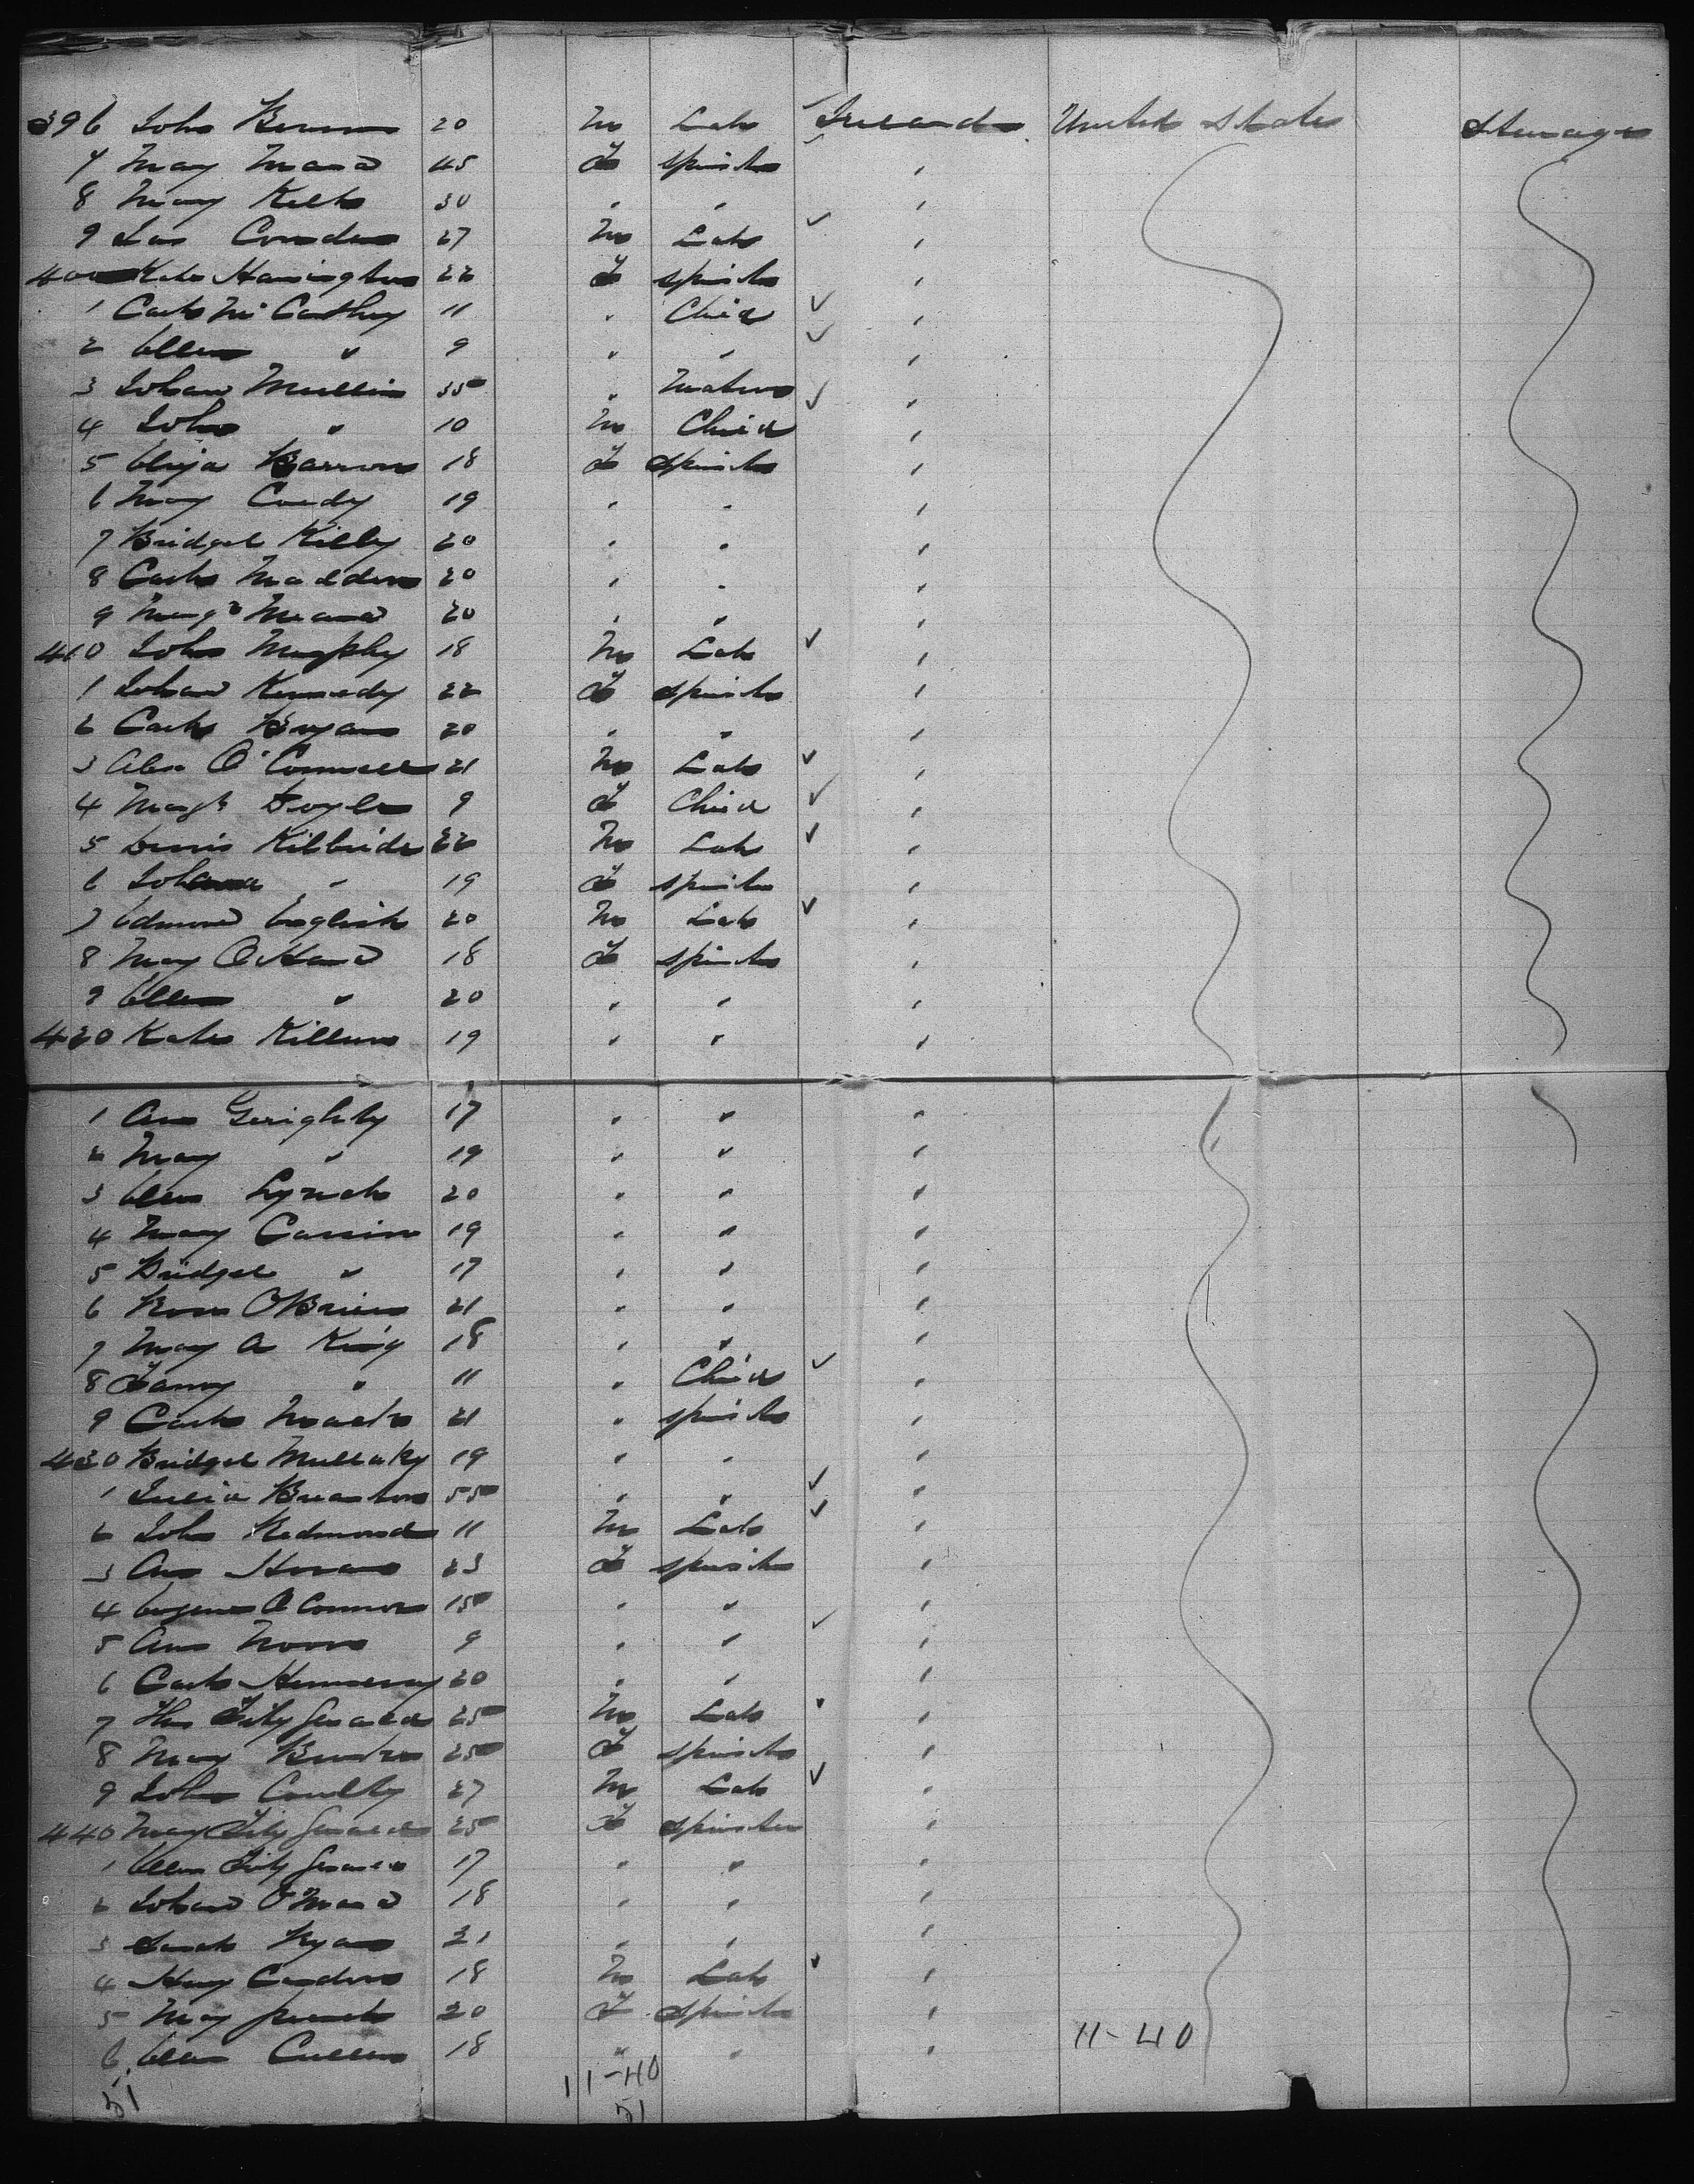 396 John 20 M Lab Ireland United States Steerage
7 Mary Mara 45 F Spinster "
8 Mary Kelly 30 " " "
9 Jas 27 M Lab ✓ "
400 Kate Harrington 22 F Spinster "
1 Cath McCarthy 11 " Child ✓ "
2 Ellen " 9 " " ✓ "
3 Johan Mullin 35 " Matron "
4 John " 10 M Child ✓ "
5 Eliza Barron 18 F Spinster "
6 Mary Coady 19 " " "
7 Bridget Kilby 20 " " "
8 Cath Madden 20 " " "
9 Margt Meara 20 " " "
410 John Murphy 18 M Lab ✓ "
1 Johan Kennedy 22 F Spinster "
2 Cath Bryan 20 " " "
3 Alex O'Connell 21 M Lab ✓ "
4 Margt Doyle 9 F Child ✓ "
5 Denis Kilbride 22 M Lab ✓ "
6 Johanna " 19 F Spinster "
7 Edmond English 20 M Lab ✓ "
8 Mary O'Hara 18 F Spinster "
9 Ellen " 20 " " "
420 Kate Killeen 19 " " "
1 Ann Gerighty 17 " " "
2 Mary " 19 " " "
3 Ellen Lynch 20 " " "
4 Mary 19 " " "
5 Bridget " 17 " " "
6 Rose O'Brien 21 " " "
7 Mary A King 18 " " "
8 Fanny " 11 " Child ✓ "
9 Cath Mack 21 " Spinster "
430 Bridget Mullaky 19 " " "
1 Julia 55 " " ✓ "
2 John Redmond 11 M Lab ✓ "
3 Ann Horan 23 F Spinster "
4 O'Connor 15 " " "
5 Ann 9 " " ✓ "
6 Cath Hennessy 20 " " "
7 Ths Fitzgerald 25 M Lab "
8 Mary 25 F Spinster "
9 John 27 M Lab ✓ "
440 Mary Fitzgerald 25 F Spinster "
1 Ellen Fitzgerald 17 " " "
2 Johan O'Mara 18 " " "
3 Sarah Ryan 21 " " "
4 18 M Lab "
5 Mary 20 F Spinster "
6 Ellen Cullen 18 " " "
11-40
11-40
51 51